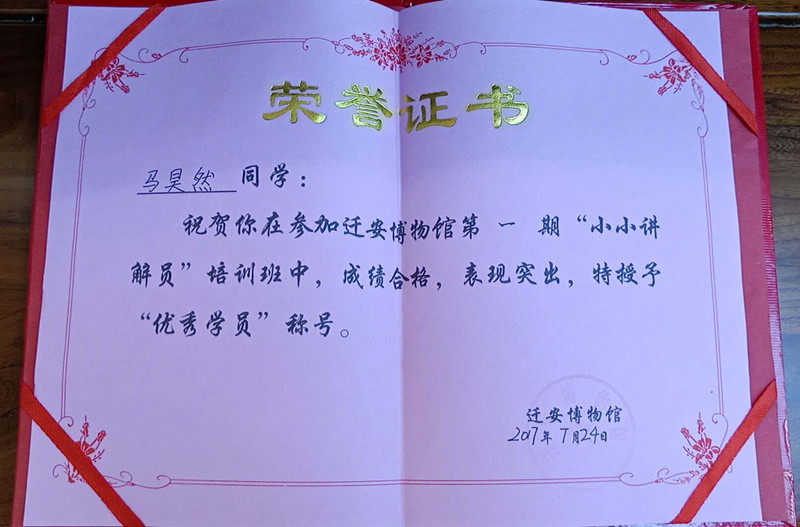 荣誉证书
马昊然 同学：
祝贺你在参加迁安博物馆第 一 期“小小讲
解员”培训班中，成绩合格，表现突出，特授予
“优秀学员”称号。
迁安博物馆
2017年7月24日